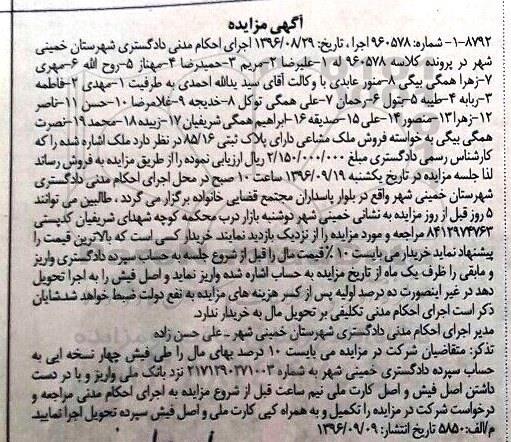 آگهی مزایده
۸۷۹۲-۱- شماره: ۹۶۰۵۷۸ اجرا، تاریخ: ۱۳۹۶/۰۸/۲۹ اجرای احکام مدنی دادگستری شهرستان خمینی
شهر در پرونده کلاسه ۹۶۰۵۷۸ له ۱-علیرضا ۲-مریم ۳-حمیدرضا ۴-مهناز ۵-روح الله ۶-مهری
۷-زهرا همگی بیگی ۸-منور عابدی با وکالت آقای سید یدالله احمدی به طرفیت ۱-مهدی ۲-فاطمه
۳-ربابه ۴-طیبه ۵-بتول ۶-رحمان ۷-علی همگی توکل ۸-خدیجه ۹-غلامرضا ۱۰-حسن ۱۱-ناصر
۱۲-زهرا ۱۳-منصور ۱۴-علی ۱۵-صدیقه ۱۶-ابراهیم همگی شریفیان ۱۷-زبیده ۱۸-محمد ۱۹-نصرت
همگی بیگی به خواسته فروش ملک مشاعی دارای پلاک ثبتی ۸۵/۱۶ در نظر دارد ملک اشاره شده را که
کارشناس رسمی دادگستری مبلغ ۲/۱۵۰/۰۰۰/۰۰۰ ریال ارزیابی نموده را از طریق مزایده به فروش رساند
لذا جلسه مزایده در تاریخ یکشنبه ۱۳۹۶/۰۹/۱۹ ساعت ۱۰ صبح در محل اجرای احکام مدنی دادگستری
شهرستان خمینی شهر واقع در بلوار پاسداران مجتمع قضایی خانواده برگزار می گردد، طالبین می توانند
۵ روز قبل از روز مزایده به نشانی خمینی شهر دوشنبه بازار درب محکمه کوچه شهدای شریفیان کدپستی
۸۴۱۲۹۷۴۷۶۳ مراجعه و مورد مزایده را از نزدیک بازدید نمایند خریدار کسی است که بالاترین قیمت را
پیشنهاد نماید خریدار می بایست ۱۰٪ قیمت مال را قبل از شروع جلسه به حساب سپرده دادگستری واریز
و مابقی را ظرف یک ماه از تاریخ مزایده به حساب اشاره شده واریز نماید و اصل فیش را به اجرا تحویل
دهد در غیر اینصورت ده درصد اولیه پس از کسر هزینه های مزایده به نفع دولت ضبط خواهد شد.شایان
ذکر است اجرای احکام مدنی تکلیفی بر تحویل مال به خریدار ندارد.
مدیر اجرای احکام مدنی دادگستری شهرستان خمینی شهر - علی حسن زاده
تذکر: متقاضیان شرکت در مزایده می بایست ۱۰ درصد بهای مال را طی فیش چهار نسخه ایی به
حساب سپرده دادگستری خمینی شهر به شماره ۲۱۷۱۲۹۰۲۷۱۰۰۳ نزد بانک ملی واریز و با در دست
داشتن اصل فیش و اصل کارت ملی نیم ساعت قبل از شروع مزایده به اجرای احکام مدنی مراجعه و
درخواست شرکت در مزایده را تکمیل و به همراه کپی کارت ملی و اصل فیش سپرده تحویل اجرا نمایید.
م/الف: ۵۸۵۰ تاریخ انتشار: ۱۳۹۶/۰۹/۰۹